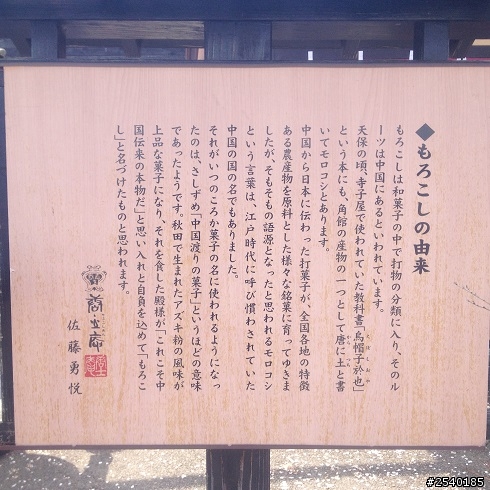 ◆もろこしの由来
もろこしは和菓子の中で打物の分類に入り、そのル
ーツは中国にあるといわれています。
天保の頃、寺子屋で使われていた教科書「烏帽子於也」
という本にも、角館の産物の一つとして唐に土と書
いてモロコシとあります。
中国から日本に伝わった打菓子が、全国各地の特徴
ある農産物を原料とした様々な銘菓に育ってゆきま
したが、そもそもの語源となったと思われるモロコシ
という言葉は、江戸時代に呼び慣わされていた
中国の国の名でもありました。
それがいつのころか菓子の名に使われるようになっ
たのは、さしずめ「中国渡りの菓子」というほどの意味
であったようです。秋田で生まれたアズキ粉の風味が
上品な菓子になり、それを食した殿様が「これこそ中
国伝来の本物だ」と思い入れと自負を込めて「もろこ
し」と名づけたものと思われます。
佐藤勇悦
#2540185